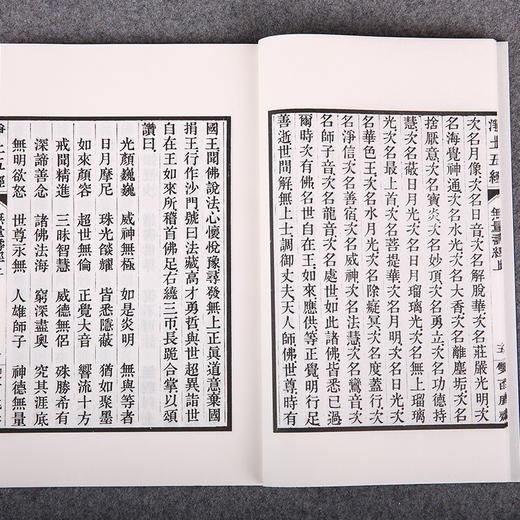 淨土五經 無量壽經上 五
次名月像次名日音次名解脫華次名莊嚴光明次
名海覺神通次名水光次名大香次名離塵垢次名
捨厭意次名寶炎次名妙頂次名勇立次名功德持
慧次名蔽日月光次名日月瑠璃光次名無上瑠璃
光次名最上首次名菩提華次名月明次名日光次
名華色王次名水月光次名除癡冥次名度蓋行次
名淨信次名善宿次名威神次名法慧次名鸞音次
名師子音次名龍音次名處世如此諸佛皆悉已過
爾時次有佛名世自在王如來應供等正覺明行足
善逝世間解無上士調御丈夫天人師佛世尊時有
國王聞佛說法心懷悅豫尋發無上正真道意棄國
捐王行作沙門號曰法藏高才勇哲與世超異詣世
自在王如來所稽首佛足右繞三帀長跪合掌以頌
讚曰
光顏巍巍 威神無極 如是炎明 無與等者
日月摩尼 珠光燄耀 皆悉隱蔽 猶如聚墨
如來顏容 超世無倫 正覺大音 響流十方
戒聞精進 三昧智慧 威德無侶 殊勝希有
深諦善念 諸佛法海 窮深盡奧 究其涯底
無明欲怒 世尊永無 人雄師子 神德無量
土五經 無量壽經上